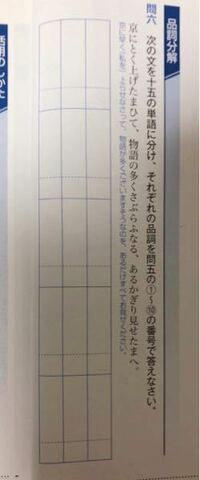 品詞分解
問六 次の文を十五の単語に分け、それぞれの品詞を問五の①〜⑩の番号で答えなさい。
京にとく上げたまひて、物語の多くさぶらふなる、あるかぎり見せたまへ。
京に早く(私を)上らせなさって、物語が多くございますそうなのを、あるだけすべてお見せください。
活用のしかた